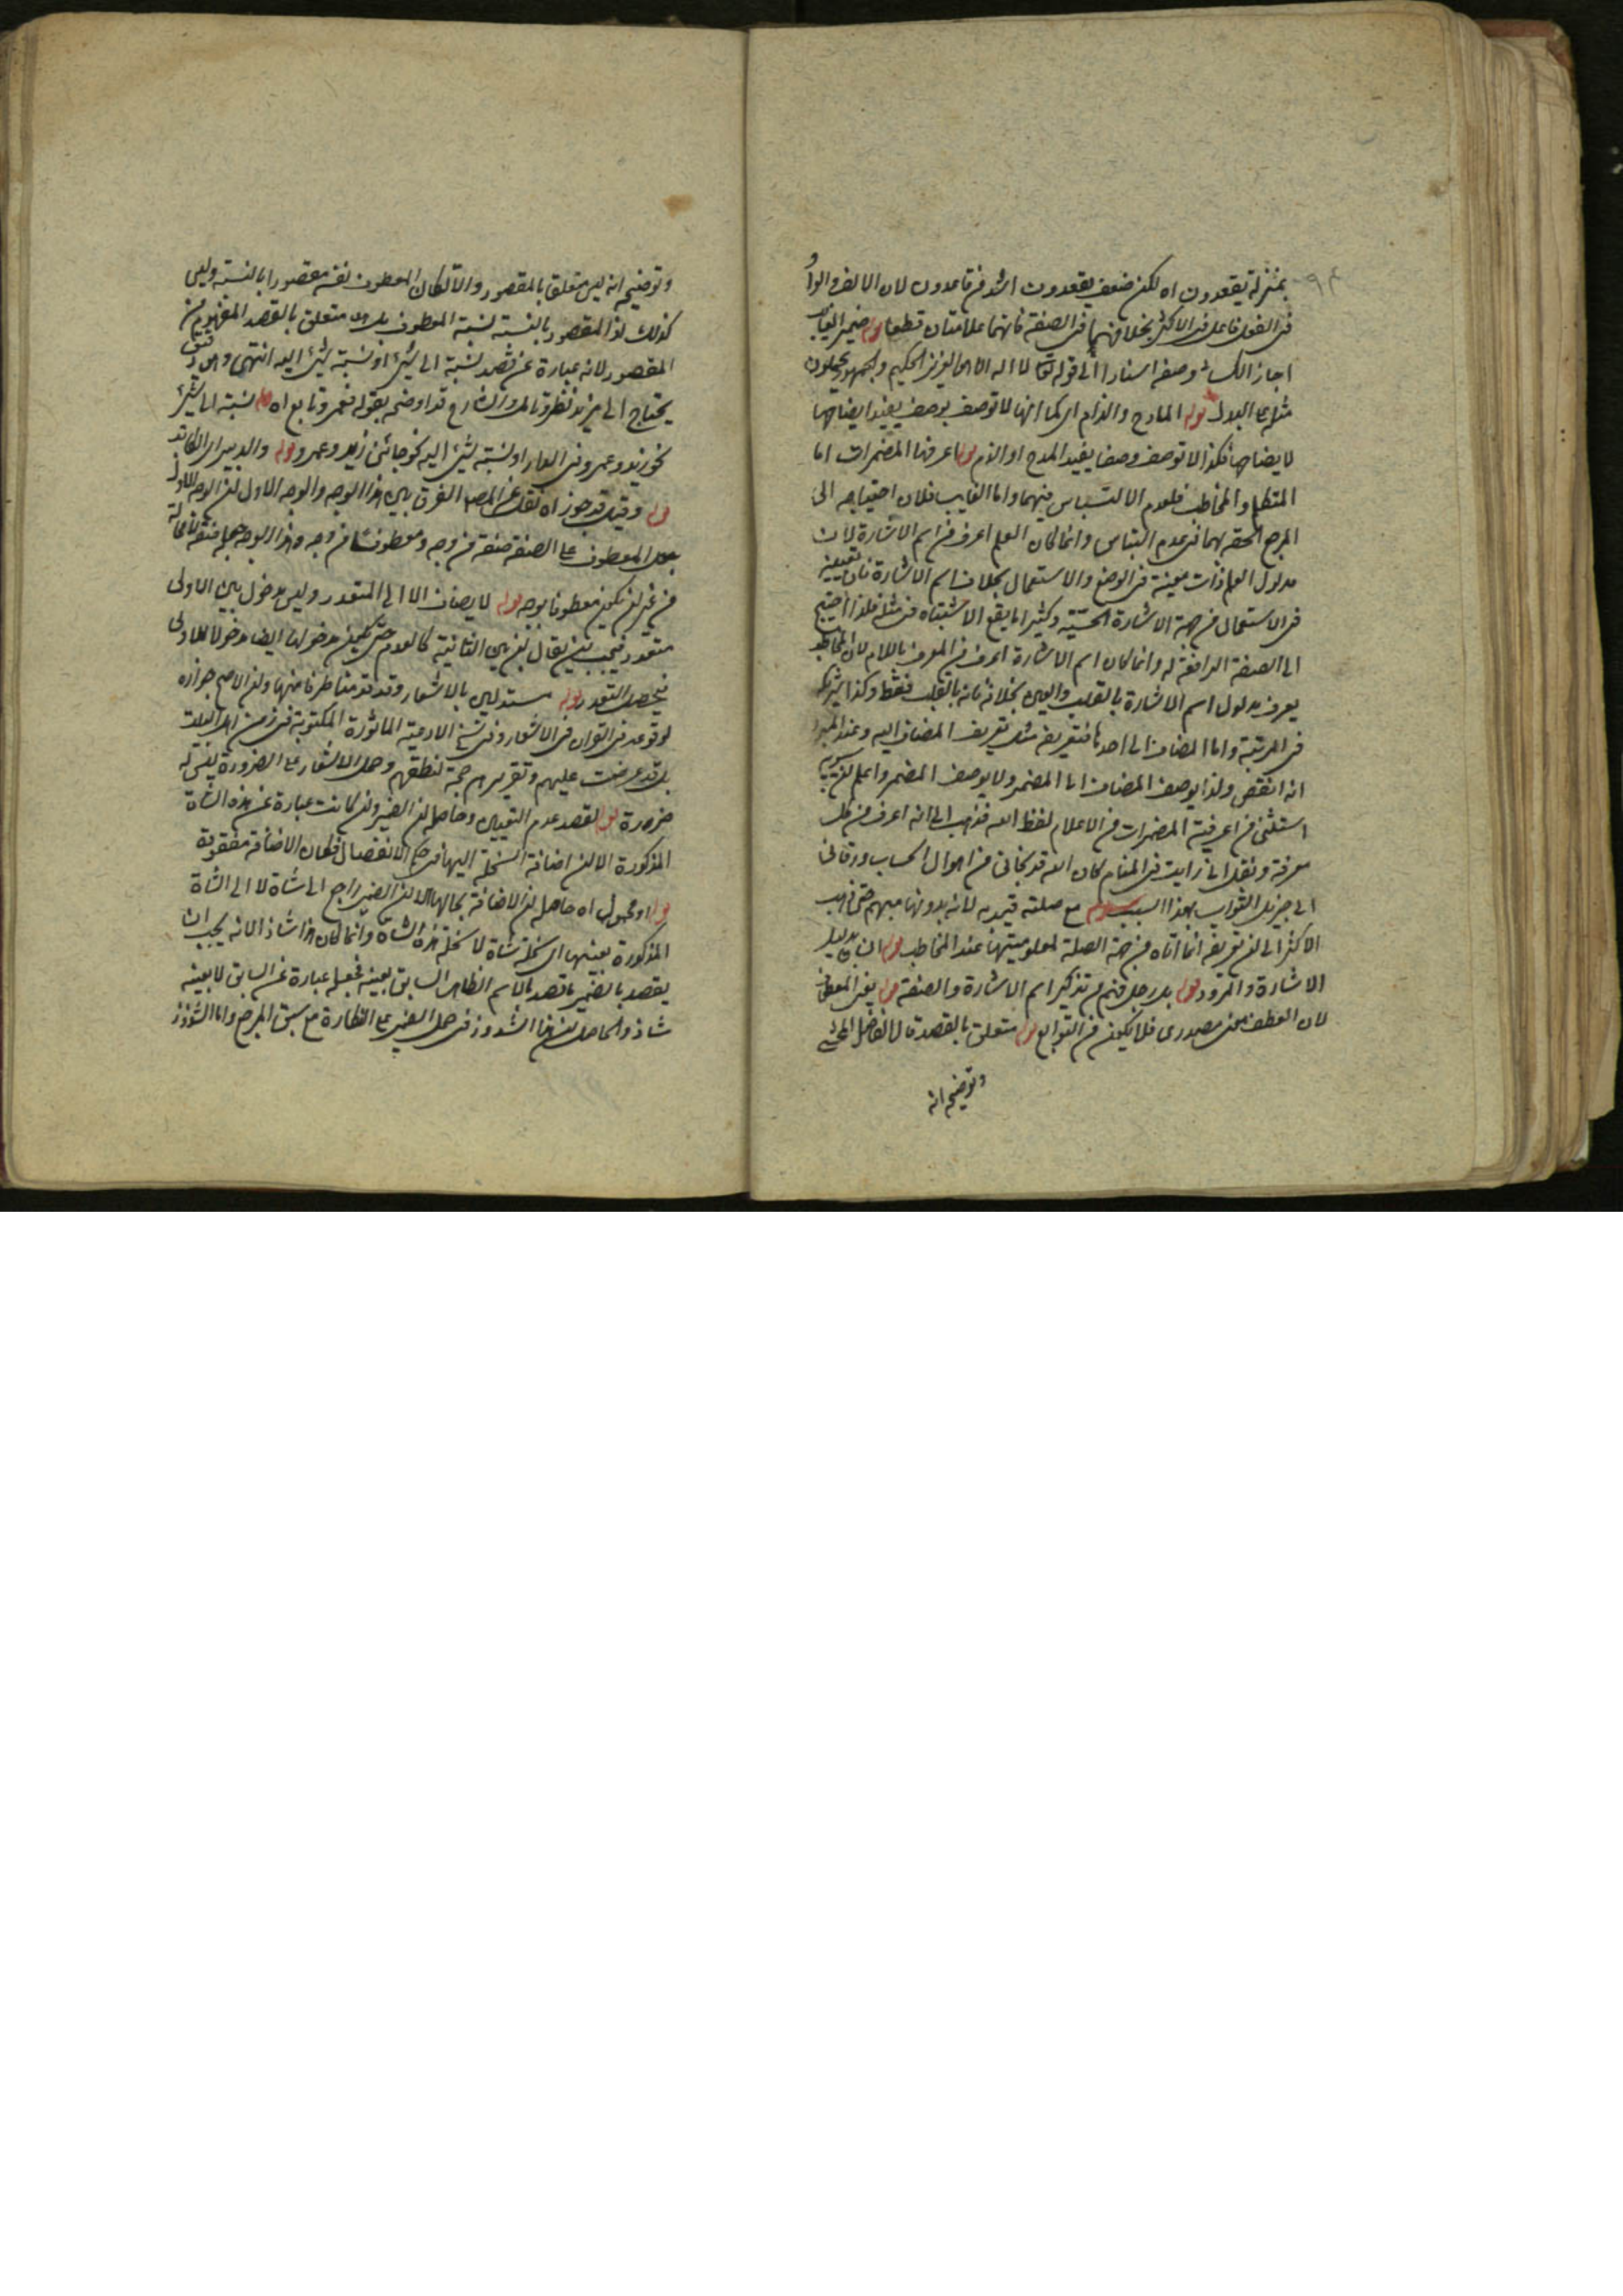 بمنزلة يقعدون اه لكن ضعف يقعدون اشد من قاعدون لان الالف والواو
فى الفعل فاعل فى الاكثر بخلافهما فى الصفة فانهما علامتان قطعا قوله ضمير الغايب
اجاز الكسائى وصفه اسنادا الى قوله تعالى لا اله الا هو العزيز الحكيم والجمهور يحملون
مثله على البدل قوله المادح والذام اى كما انها لا توصف بوصف يفيد ايضاحها
لايضاحها فكذا لا توصف وصفا يفيد المدح او الذم قوله اعرفها المضمرات اما
المتكلم والمخاطب فلعدم الالتباس فيهما واما الغايب فلان احتياجه الى
المرجع الحقه بهما فى عدم التباس وانما كان العلم اعرف من اسم الاشارة لان
مدلول العلم ذات معينة فى الوضع والاستعمال بخلاف اسم الاشارة فان تعيينه
فى الاستعمال من جهة الاشارة الحسّيّة وكثيرا ما يقع الاشتباه فى مثله فلذا احتيج
الى الصفة الرافعة له وانما كان اسم الاشارة اعرف من المعرف باللام لان المخاطب
يعرف مدلول اسم الاشارة بالقلب والعين بخلافه فانه بالقلب فقط وكذا شريكه
فى المرتبة واما المضاف الى احدها فتعريفه مثل تعريف المضاف اليه وعند المبرد
انه انقص ولذا يوصف المضاف الى المضمر ولا يوصف المضمر واعلم ان سيبويه
استثنى من اعرفية المضمرات من الاعلام لفظ الله فذهب الى انه اعرف من كل
معرفة ونقل انى رايت فى المنام كان الله قد نجانى من اهوال الحساب ورقانى
الى جزيل الثواب بهذا السبب قوله مع صلته قيد به لانه بدونها مبهم حتى ذهب
الاكثر الى ان تعريفه انما اتاه من جهة الصلة لمعلوميتها عند المخاطب قوله البان بدليل
الاشارة والمرور قوله بل رجل فنهم من تذكير اسم الاشارة والصفة قوله يعنى المعطوف
لان العطف معنى مصدرى فلا يكون من التوابع قوله متعلق بالقصد قال الفاضل المحشى
وتوضيحه انه
وتوضيحه انه ليس متعلق بالمقصود والا لكان المعطوف نفسه مقصودا بالنسبة وليس
كذلك اذ المقصود بالنسبة نسبة المعطوف بل هو متعلق بالقصد المفهوم من
المقصود لانه عبارة عن قصد نسبة الى شئ او نسبة شئ اليه انتهى وهو دقيق
يحتاج الى مزيد نظر وتامل والشارح قد اوضحه بقوله فعمرو تابع اه قوله نسبة الى شئ
نحو زيد وعمرو فى الدار او نسبة شئ اليه نحو جائنى زيد وعمرو قوله والدبير اى الكاتب
قوله وقيل قد جوز اه نقل عن المصنف الفرق بين هذا الوجه والوجه الاول ان الوجه الاول
جعل المعطوف على الصفة صفة من وجه ومعطوفا من وجه وهذا الوجه جعله صفة لا محالة
من غير ان يكون معطوفا بوجه قوله لا يضاف الا الى المتعدد وليس مدخول بين الاولى
متعدد فيجب بان يقال ان بين الثانية كالعدم حتى يكون مدخولها ايضا مدخولا للاولى
فيحصل التعدد قوله مستدلين بالاشعار وقد قدمنا طرفا منها وان الاصح جوازه
لوقوعه فى القران فى الاشعار وفى نسخ الادعية الماثورة المكتوبة فى زمن اهل البيت
بل قد عرضت عليهم وتقريرهم حجة لنطقهم وحمل الاشعار على الضرورة ليس له
ضرورة قوله لقصد عدم التعيين وحاصله ان الضمير وان كانت عبارة عن هذه الشاة
المذكورة الا ان اضافة السخلة اليها فى حكم الانفصال فكان الاضافة مفقودة
قوله او محمول اه حاصله ان الاضافة بحالها الا ان الضمير راجع الى شاة لا الى الشاة
المذكورة بعينها اى سخلة شاة لا سخلة هذه الشاة وانما كان هذا شاذ الانه يجب ان
يقصد بالضمير ما قصد بالاسم الظاهر السابق بعينه فجعله عبارة عن السابق لا بعينه
شاذ والحاصل ان هذا الشذوذ فى حمل الضمير على النكارة مع سبق المرجع واما الشذوذ